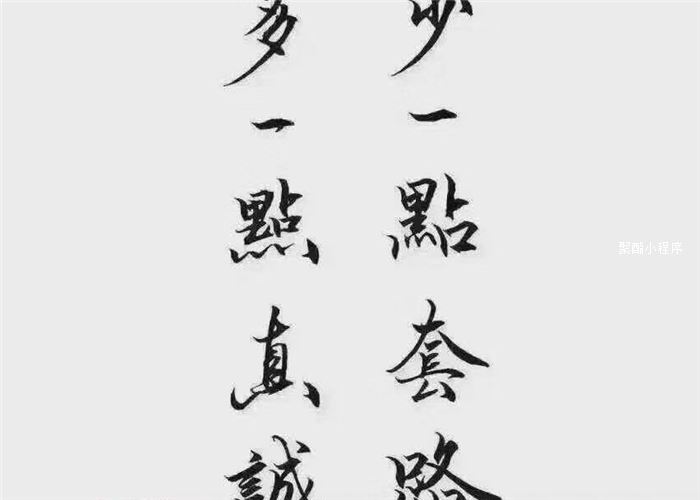 少一點套路
多一點真誠
聚酯小程序